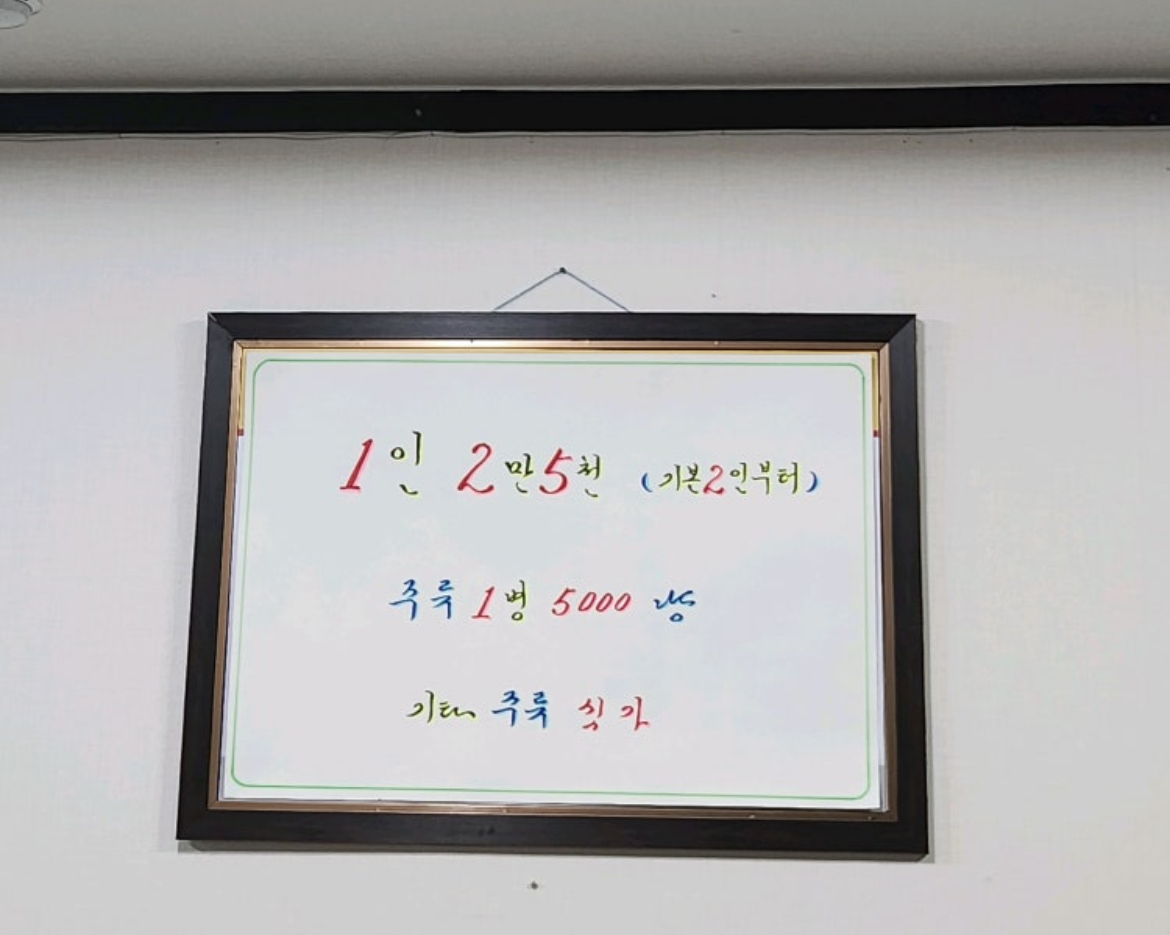 1인 2만5천 (기본2인부터)
주류 1병 5000 냥
기타 주류 싯가